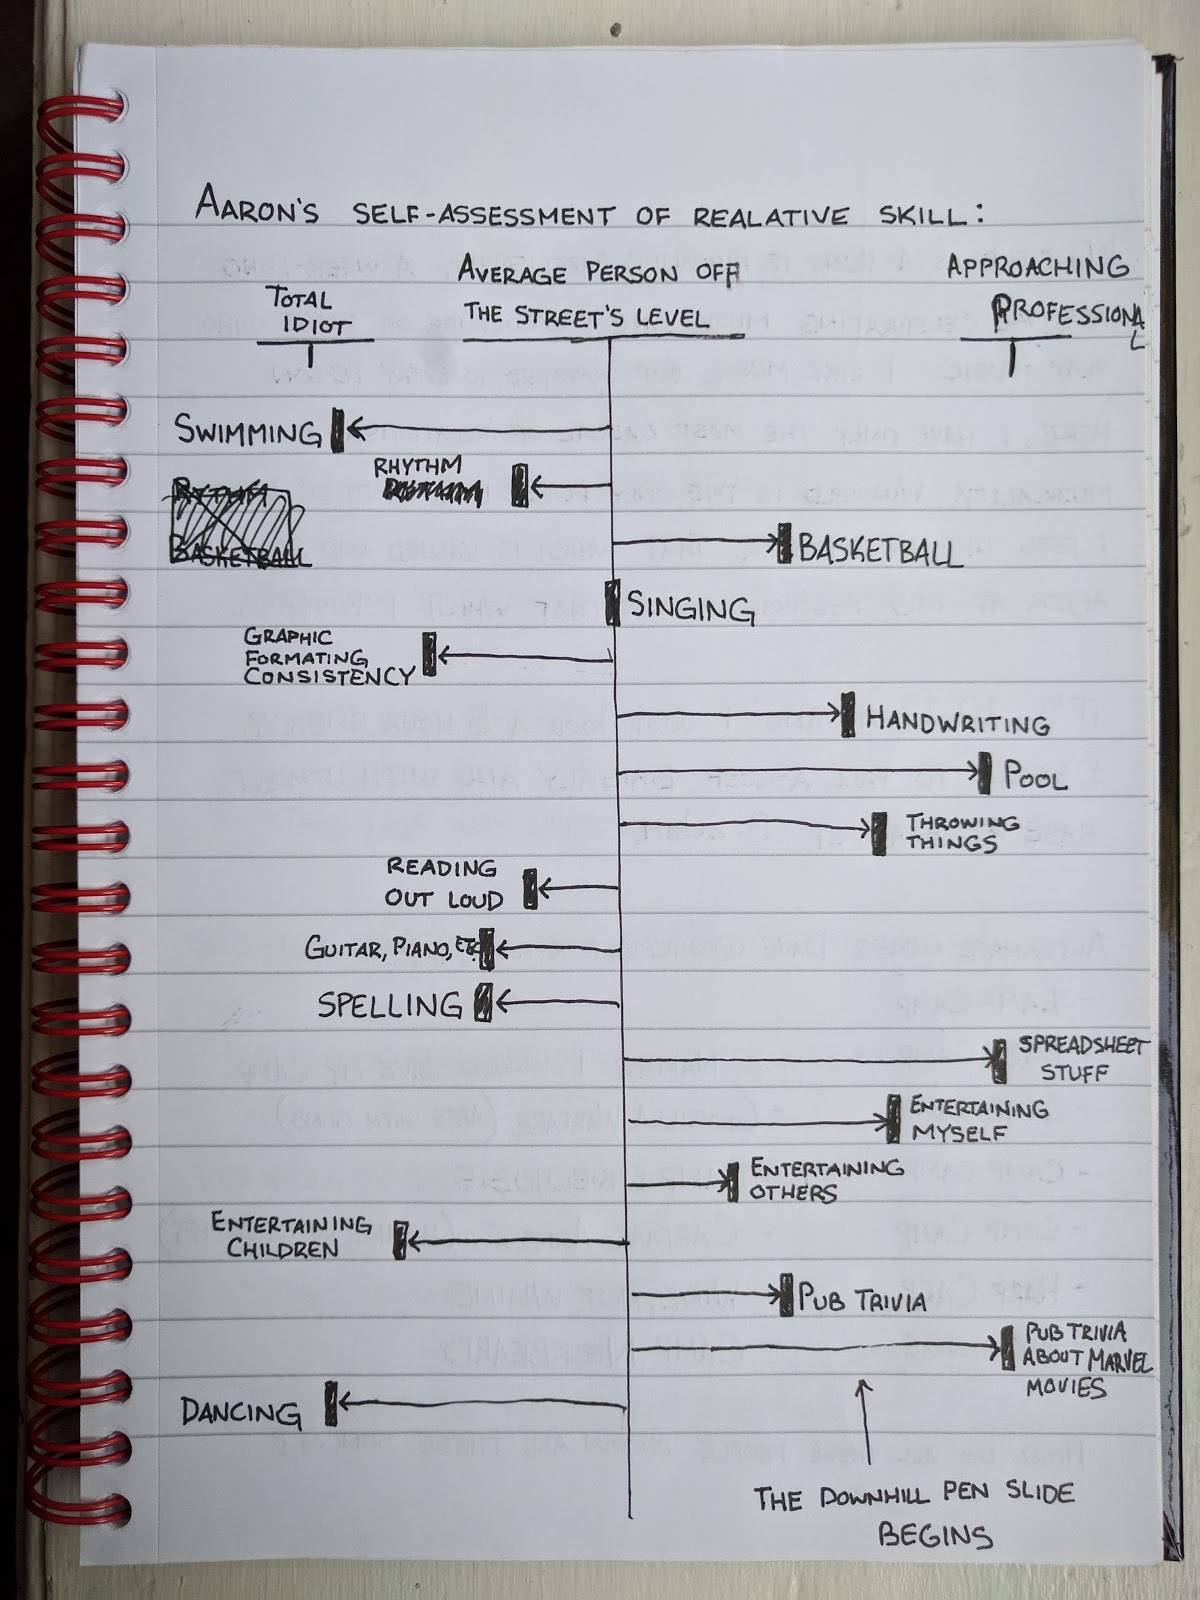 AARON'S SELF-ASSESSMENT OF REALATIVE SKILL:
TOTAL
IDIOT
AVERAGE PERSON OFF
THE STREET'S LEVEL
APPROACHING
PROFESSIONAL
SWIMMING
RHYTHM
BASKETBALL
BASKETBALL
SINGING
GRAPHIC
FORMATING
CONSISTENCY
HANDWRITING
POOL
THROWING
THINGS
READING
OUT LOUD
GUITAR, PIANO, ETC.
SPELLING
SPREADSHEET
STUFF
ENTERTAINING
MYSELF
ENTERTAINING
OTHERS
ENTERTAINING
CHILDREN
PUB TRIVIA
PUB TRIVIA
ABOUT MARVEL
MOVIES
DANCING
THE DOWNHILL PEN SLIDE
BEGINS